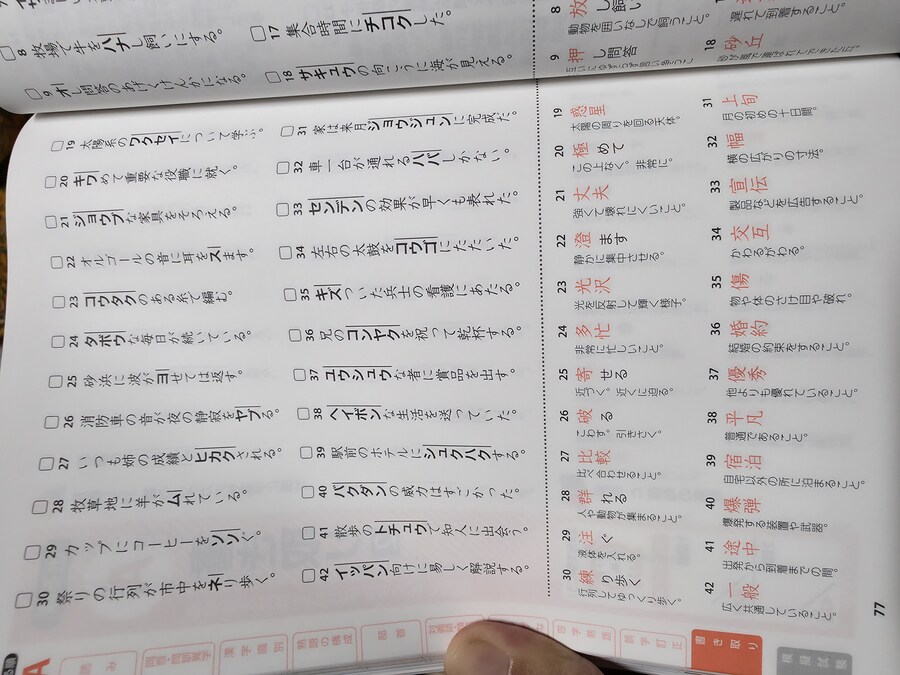 8 牧場で牛をハナし飼いにする。
9 オし問答のあげくけんかになる。
17 集合時間にチコクした。
18 サキュウの向こうに海が見える。
8 放し飼い
動物を囲いなしで飼うこと。
9 押し問答
遅れて到着すること。
18 砂丘
19 太陽系のワクセイについて学ぶ。
20 キワめて重要な役職に就く。
21 ジョウブな家具をそろえる。
22 オルゴールの音に耳をスます。
23 コウタクのある糸で編む。
24 タボウな毎日が続いている。
25 砂浜に波がヨせては返す。
26 消防車の音が夜の静寂をヤブる。
27 いつも姉の成績とヒカクされる。
28 牧草地に羊がムれている。
29 カップにコーヒーをソソぐ。
30 祭りの行列が市中をネり歩く。
31 家は来月ジョウジュンに完成だ。
32 車一台が通れるハバしかない。
33 センデンの効果が早くも表れた。
34 左右の太鼓をコウゴにたたいた。
35 キズついた兵士の看護にあたる。
36 兄のコンヤクを祝って乾杯する。
37 ユウシュウな者に賞品を出す。
38 ヘイボンな生活を送っていた。
39 駅前のホテルにシュクハクする。
40 バクダンの威力はすごかった。
41 散歩のトチュウで知人に出会う。
42 イッパン向けに易しく解説する。
19 惑星
太陽の周りを回る天体。
20 極めて
この上なく。非常に。
21 丈夫
強くて壊れにくいこと。
22 澄ます
静かに集中させる。
23 光沢
光を反射して輝く様子。
24 多忙
非常に忙しいこと。
25 寄せる
近づく。近くに迫る。
26 破る
こわす。引きさく。
27 比較
比べ合わせること。
28 群れる
人や動物が集まること。
29 注ぐ
液体を入れる。
30 練り歩く
行列してゆっくり歩く。
31 上旬
月の初めの十日間。
32 幅
横の広がりの寸法。
33 宣伝
製品などを広告すること。
34 交互
かわるがわる。
35 傷
物や体のさけ目や破れ。
36 婚約
結婚の約束をすること。
37 優秀
他よりも優れていること。
38 平凡
普通であること。
39 宿泊
自宅以外の所に泊まること。
40 爆弾
爆発する装置や武器。
41 途中
出発から到着までの間。
42 一般
広く共通していること。
77
A
読み
同音・同訓異字
漢字識別
熟語の構成
部首
四字熟語
誤字訂正
書き取り
模擬試験